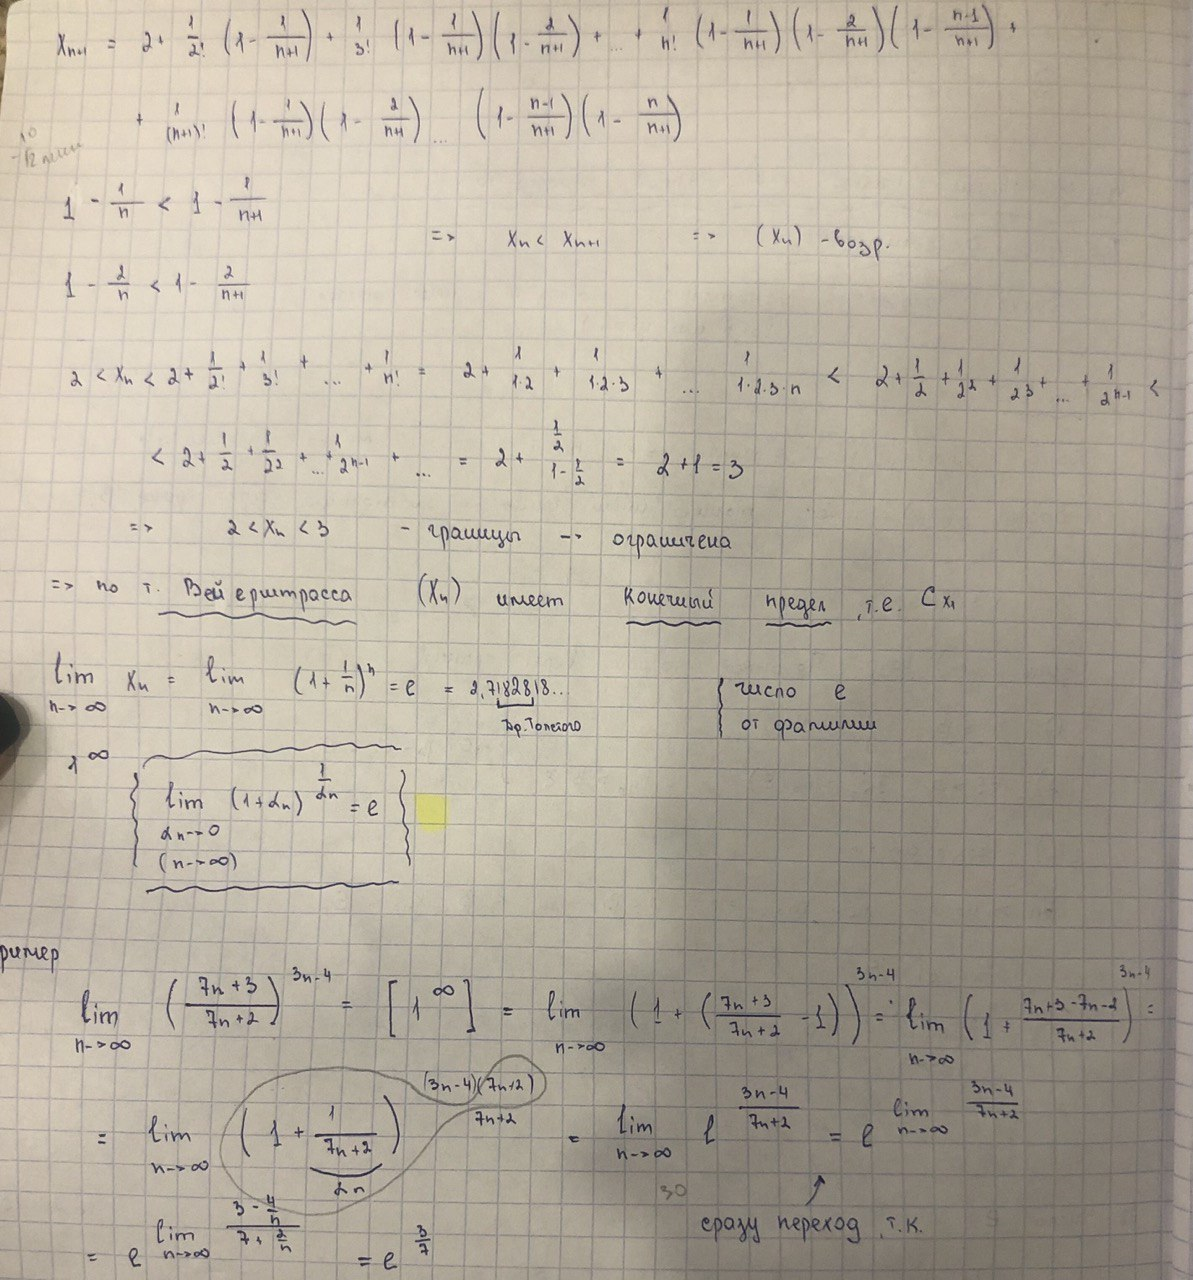 x_{n+1} = 2 + 1/2! (1 - 1/(n+1)) + 1/3! (1 - 1/(n+1)) (1 - 2/(n+1)) + ... + 1/n! (1 - 1/(n+1)) (1 - 2/(n+1)) (1 - (n-1)/(n+1)) +
+ 1/(n+1)! (1 - 1/(n+1)) (1 - 2/(n+1)) ... (1 - (n-1)/(n+1)) (1 - n/(n+1))
1 - 1/n < 1 - 1/(n+1)
=> x_n < x_{n+1} => (x_n) - возр.
1 - 2/n < 1 - 2/(n+1)
2 < x_n < 2 + 1/2! + 1/3! + ... + 1/n! = 2 + 1/(1·2) + 1/(1·2·3) + ... 1/(1·2·3·n) < 2 + 1/2 + 1/2^2 + 1/2^3 + ... + 1/2^{n-1} <
< 2 + 1/2 + 1/2^2 + ... + 1/2^{n-1} + ... = 2 + (1/2)/(1 - 1/2) = 2 + 1 = 3
=> 2 < x_n < 3 - границы --> ограничена
=> по т. Вейерштрасса (x_n) имеет конечный предел, т.е. Сх,
lim_{n->∞} x_n = lim_{n->∞} (1 + 1/n)^n = e = 2,7182818.. { число e
др. Толстого { от фамилии
1^∞
lim_{α_n->0 (n->∞)} (1 + α_n)^{1/α_n} = e
ример
lim_{n->∞} ((7n+3)/(7n+2))^{3n-4} = [1^∞] = lim_{n->∞} (1 + ((7n+3)/(7n+2) - 1))^{3n-4} = lim_{n->∞} (1 + (7n+3-7n-2)/(7n+2))^{3n-4} =
= lim_{n->∞} (1 + 1/(7n+2))^{(3n-4)(7n+2)/(7n+2)} = lim_{n->∞} e^{(3n-4)/(7n+2)} = e^{lim_{n->∞} (3n-4)/(7n+2)}
α_n
30
сразу переход, т.к.
= e^{lim_{n->∞} (3 - 4/n)/(7 + 2/n)} = e^{3/7}